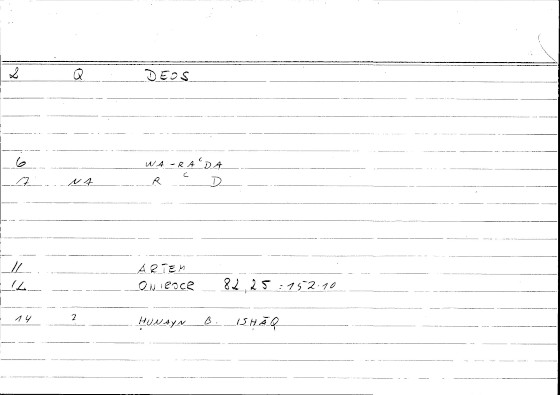 2 Q DEOS
6 WA-RAʿDA
7 NA R ʿ D
11 ARTEM
12 ONIROCR 82,25 :152.10
14 2 ḤUNAYN B. ISḤĀQ